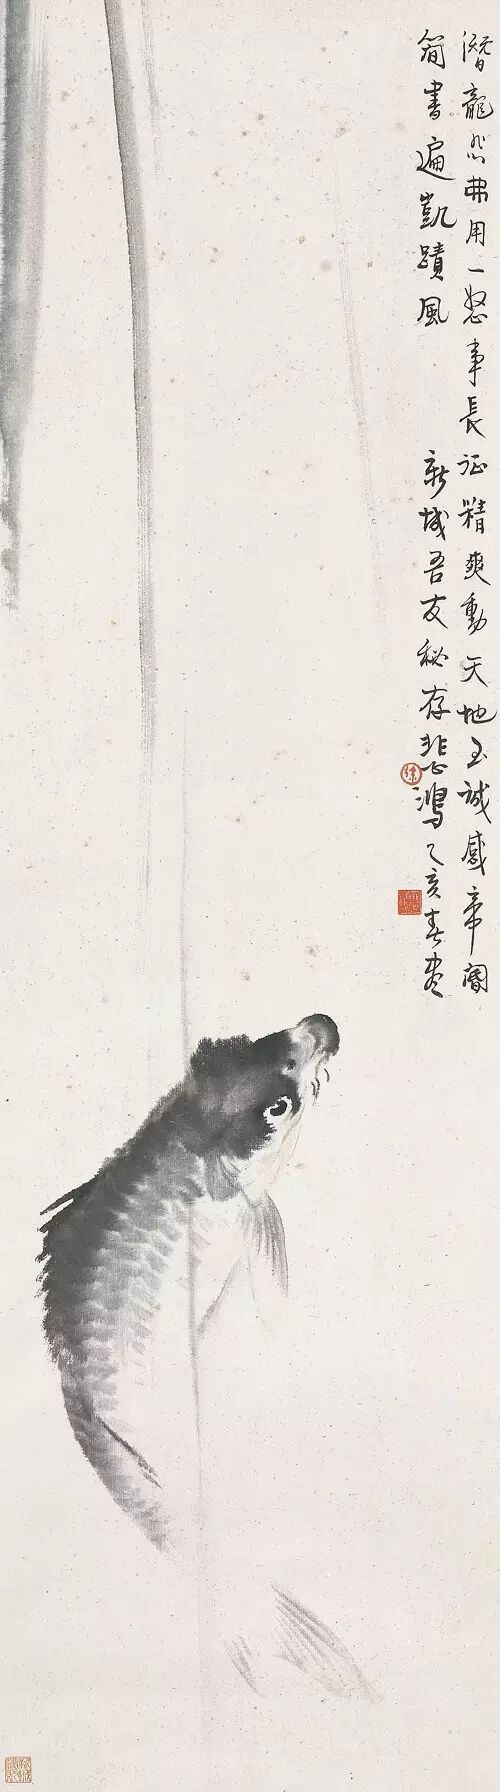 潛龍弗用一怒事長征精爽動天地至誠感帝閽
簡書遍凱蹟風 新城吾友秘存 悲鴻 乙亥春盡
徐